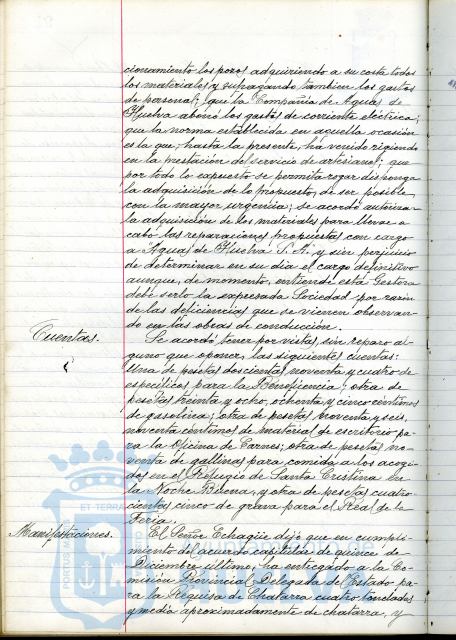 cionamiento los pozos adquiriendo a su costa todos
los materiales y sufragando tambien los gastos
de personal; que la Compañia de Aguas de
Huelva abonó los gastos de corriente eléctrica;
que la norma establecida en aquella ocasión
es la que, hasta la presente, ha venido rigiendo
en la prestación del servicio de artesianos; que
por todo lo expuesto se permita rogar disponga
la adquisición de lo propuesto, de ser posible,
con la mayor urgencia; se acordó autorizar
la adquisición de los materiales para llevar a
cabo las reparaciones propuestas con cargo
a "Aguas de Huelva S.A." y sin perjuicio
de determinar en su día el cargo definitivo
aunque, de momento, entiende esta Gestora
debe serlo la expresada Sociedad por razón
de las deficiencias que se vienen observan-
do en las obras de conducción.
Cuentas.
Se acordó tener por vistas, sin reparo al-
guno que oponer, las siguientes cuentas:
Una de pesetas doscientas noventa y cuatro de
específicos para la Beneficencia; otra de
pesetas treinta y ocho, ochenta y cinco centimos
de gasolina; otra de pesetas noventa y seis,
noventa centimos de material de escritorio pa-
ra la Oficina de Carnes; otra de pesetas no-
venta de gallinas para comida a los acogi-
dos en el Refugio de Santa Cristina en
la Noche Buena, y otra de pesetas cuatro-
cientas cinco de grava para el Real de la
Feria.
Manifestaciones.
El Señor Echagüe dijo que en cumpli-
miento del acuerdo capitular de quince de
Diciembre último, ha entregado a la Co-
misión Provincial Delegada del Estado pa-
ra la Requisa de Chatarra cuatro toneladas
y media aproximadamente de chatarra, y
ET TERRA
PORTUS MA